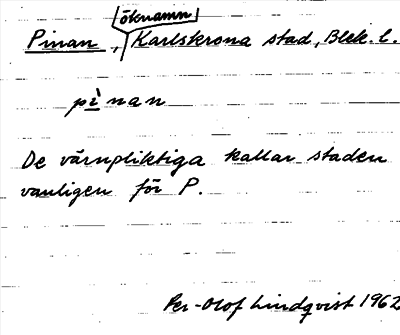 öknamn
Pinan, Karlskrona stad, Blek. l.
pìnan
De värnpliktiga kallar staden
vanligen för P.
Per-Olof Lindqvist 1962